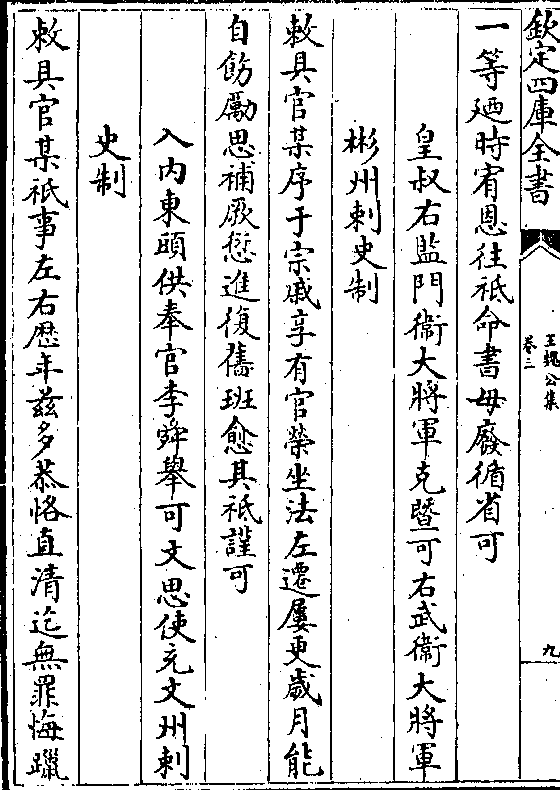 欽定四庫全書
王魏公集
卷三
九
一等廼時宥恩往祇命書毋廢循省可
皇叔右監門衛大將軍克曁可右武衛大將軍
彬州刺史制
敕具官某序于宗戚享有官榮坐法左遷屢更歲月能
自飭勵思補厥愆進復舊班愈其祇謹可
入内東頭供奉官李舜舉可文思使充文州刺
史制
敕具官某祇事左右歴年兹多恭恪直清迄無罪悔躐